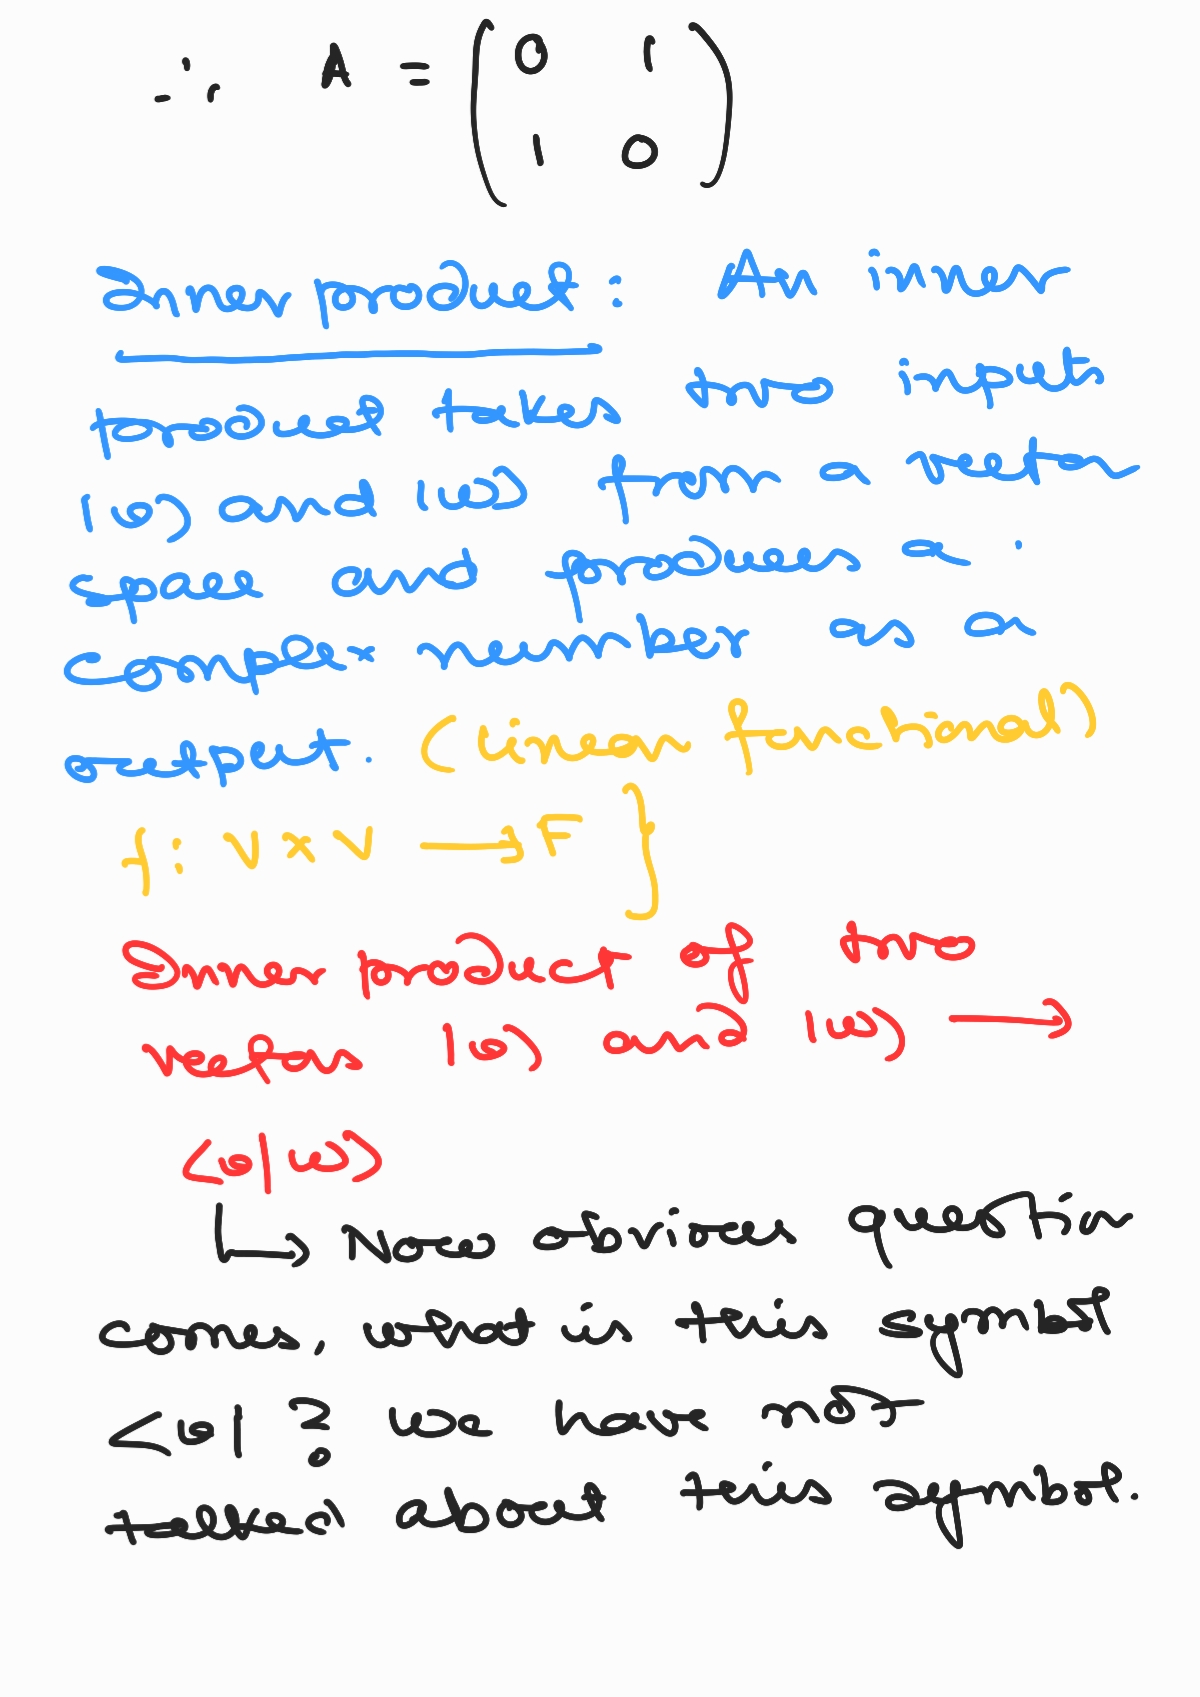 ∴ A = ( 0 1
1 0 )
Inner product : An inner
product takes two inputs
|v⟩ and |w⟩ from a vector
space and produces a
complex number as a
output. (linear functional)
f : V × V ⟶ F }
Inner product of two
vectors |v⟩ and |w⟩ ⟶
⟨v|w⟩
↳ Now obvious question
comes, what is this symbol
⟨v| ? we have not
talked about this symbol.